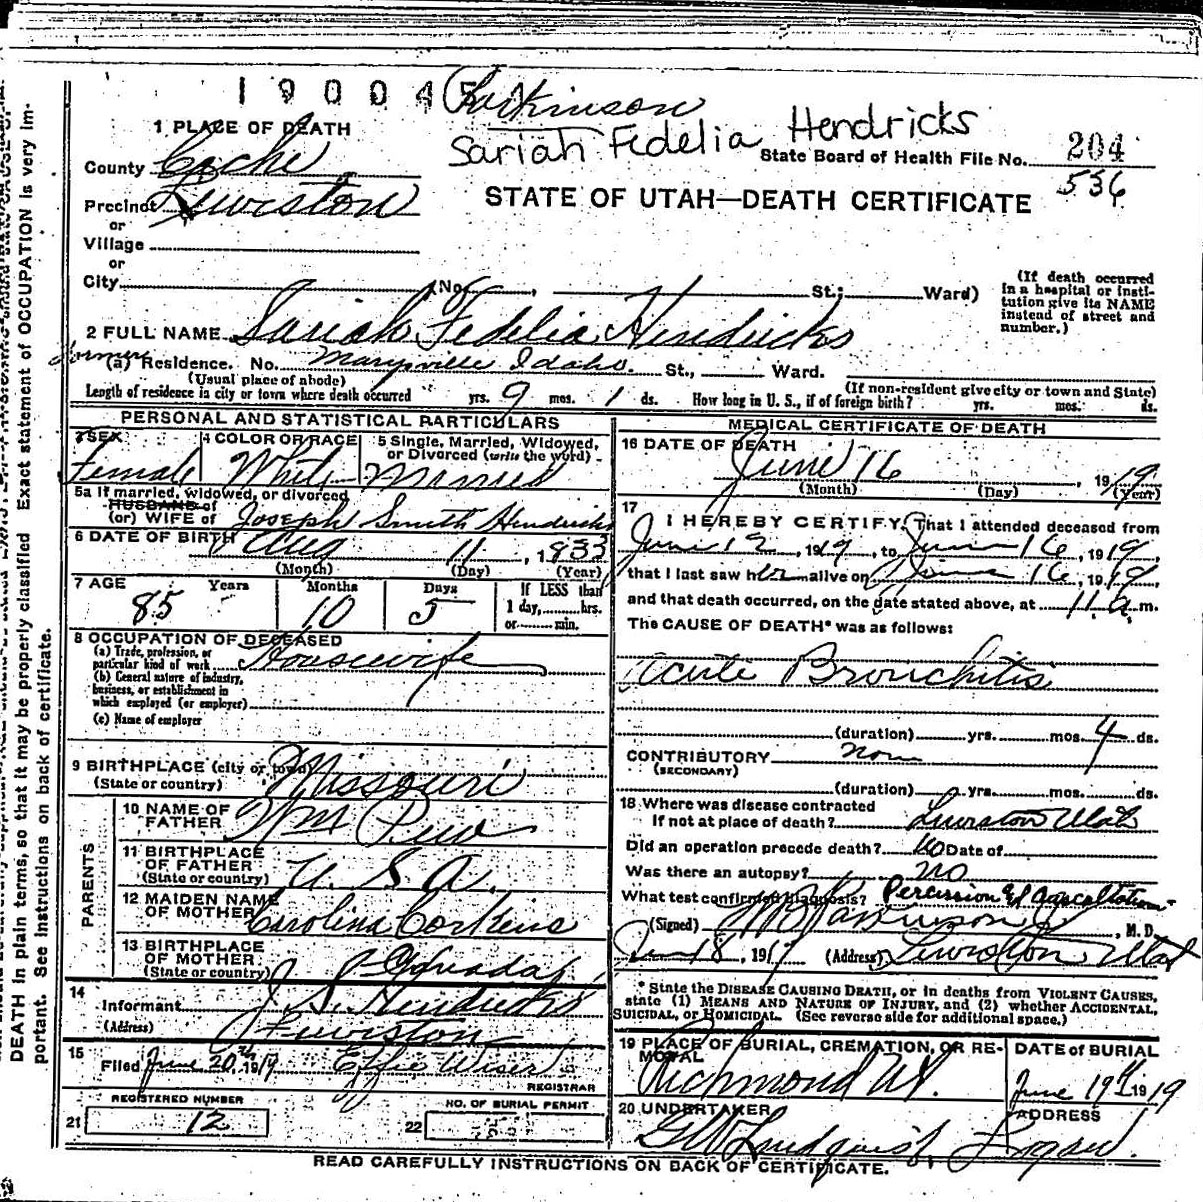 190045
Parkinson
Sariah Fedelia Hendricks
1 PLACE OF DEATH
State Board of Health File No. 204
536
County Cache
STATE OF UTAH—DEATH CERTIFICATE
Precinct Lewiston
or
Village
or
City (No. , St.; Ward)
(If death occurred in a hospital or institution give its NAME instead of street and number.)
2 FULL NAME Sariah Fedelia Hendricks
former
(a) Residence. No. Marysville Idaho. St., Ward.
(Usual place of abode) (If non-resident give city or town and State)
Length of residence in city or town where death occurred yrs. 9 mos. 1 ds. How long in U. S., if of foreign birth? yrs. mos. ds.
PERSONAL AND STATISTICAL PARTICULARS
3 SEX 4 COLOR OR RACE 5 Single, Married, Widowed,
or Divorced (write the word)
Female White Married
5a If married, widowed, or divorced
HUSBAND of
(or) WIFE of Joseph Smith Hendricks
6 DATE OF BIRTH Aug 11, 1833
(Month) (Day) (Year)
7 AGE Years Months Days If LESS than
1 day, hrs.
or min.
85 10 5
8 OCCUPATION OF DECEASED
(a) Trade, profession, or
particular kind of work Housewife
(b) General nature of industry,
business, or establishment in
which employed (or employer)
(c) Name of employer
9 BIRTHPLACE (city or town) Missouri
(State or country)
PARENTS
10 NAME OF
FATHER Wm Pew
11 BIRTHPLACE
OF FATHER U. S. A.
(State or country)
12 MAIDEN NAME
OF MOTHER Carolina Corkins
13 BIRTHPLACE
OF MOTHER
(State or country)
14
Informant J. S. Hendricks
(Address) Lewiston
15
Filed June 20th 1919 Effie Wiser
REGISTRAR
REGISTERED NUMBER NO. OF BURIAL PERMIT
21 12 22
MEDICAL CERTIFICATE OF DEATH
16 DATE OF DEATH
June 16, 1919
(Month) (Day) (Year)
17
I HEREBY CERTIFY, That I attended deceased from
June 12, 1919, to June 16, 1919,
that I last saw her alive on June 16, 1919,
and that death occurred, on the date stated above, at 11 a. m.
The CAUSE OF DEATH* was as follows:
Acute Bronchitis
(duration) yrs. mos. 4 ds.
CONTRIBUTORY none
(SECONDARY)
(duration) yrs. mos. ds.
18 Where was disease contracted
If not at place of death? Lewiston Utah
Did an operation precede death? no Date of
Was there an autopsy? no
What test confirmed diagnosis? Percussion & Auscultation
(Signed) Parkinson, M. D.
18, 1919 (Address) Lewiston Utah
* State the DISEASE CAUSING DEATH, or in deaths from VIOLENT CAUSES,
state (1) MEANS AND NATURE OF INJURY, and (2) whether ACCIDENTAL,
SUICIDAL, or HOMICIDAL. (See reverse side for additional space.)
19 PLACE OF BURIAL, CREMATION, OR REMOVAL DATE of BURIAL
Richmond Ut. June 19th 1919
20 UNDERTAKER ADDRESS
GW Lundquist, Logan.
READ CAREFULLY INSTRUCTIONS ON BACK OF CERTIFICATE.
DEATH in plain terms, so that it may be properly classified Exact statement of OCCUPATION is very important. See instructions on back of certificate.